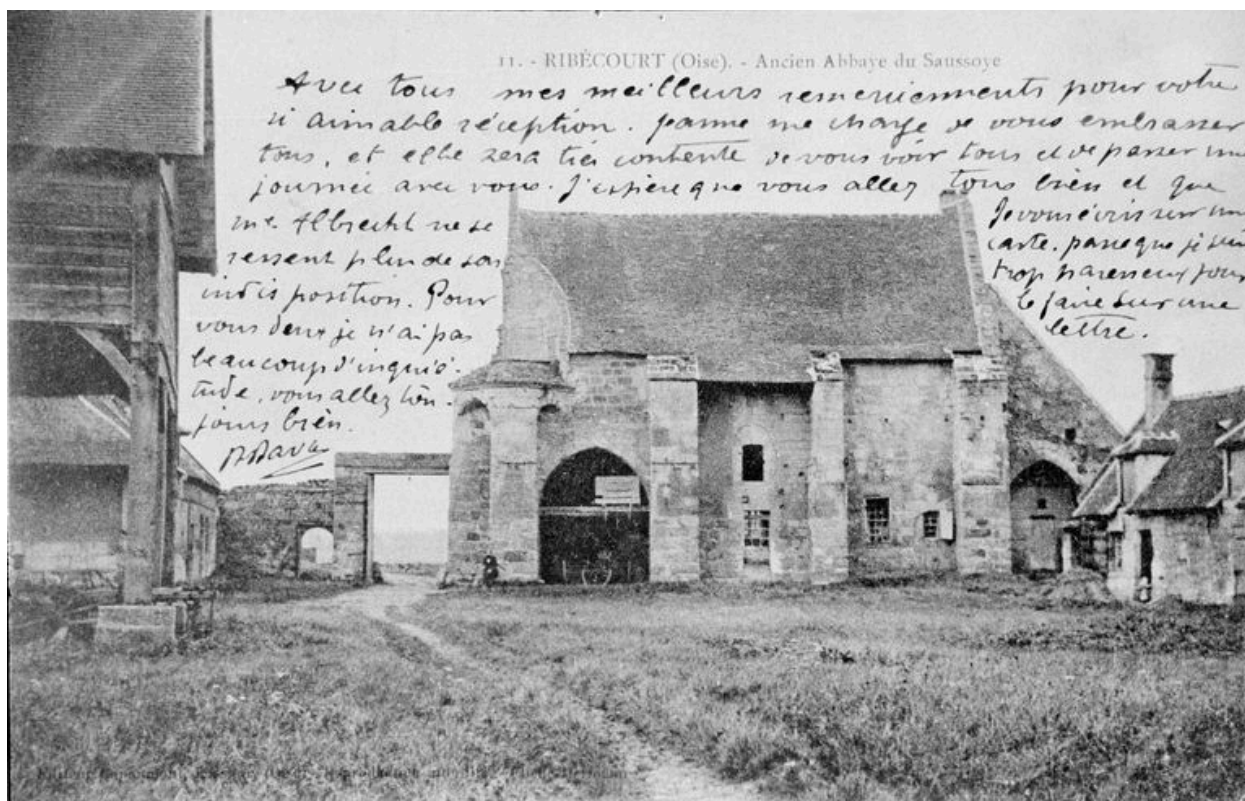 11. - RIBÉCOURT (Oise). - Ancien Abbaye du Saussoye
Avec tous mes meilleurs remerciements pour votre
si aimable réception. Jeanne me charge de vous embrasser
tous, et elle sera très contente de vous voir tous et de passer une
journée avec vous. J'espère que vous allez tous bien et que
Mr. Albrecht ne se
ressent plus de son
indisposition. Pour
vous deux je n'ai pas
beaucoup d'inquié-
tude, vous allez tou-
jours bien.
Je vous écris sur une
carte, parce que je suis
trop paresseux pour
le faire sur une
lettre.